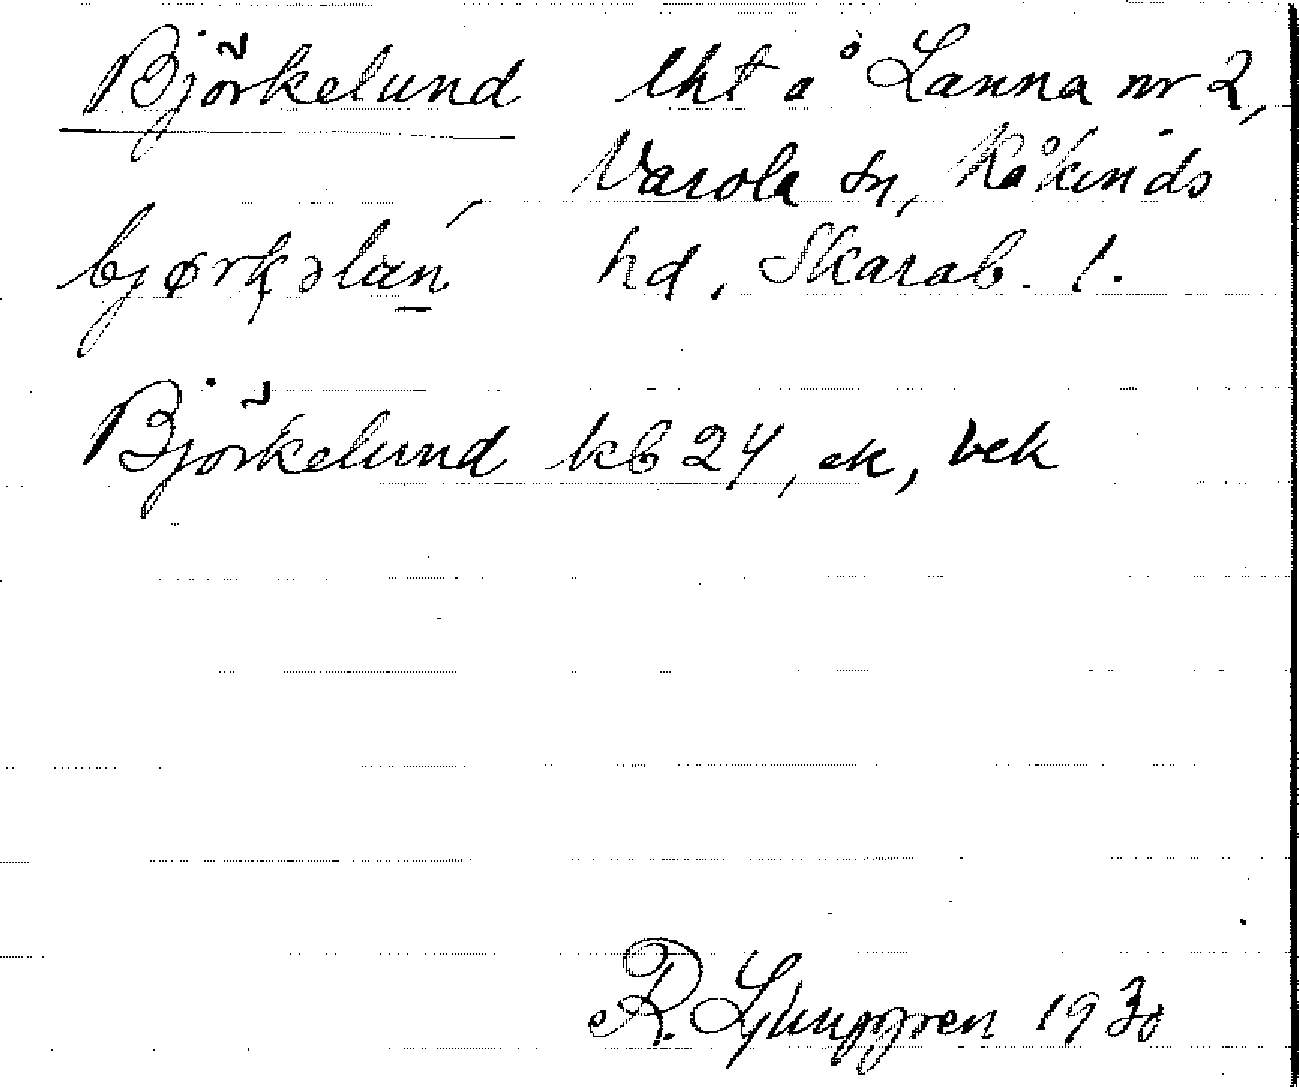 Björkelund lht å Lanna nr 2,
Varola sn, Kåkinds
bjørkəlun hd, Skarab. l.
Björkelund kb 24, ek, bek
R. Ljunggren 1930